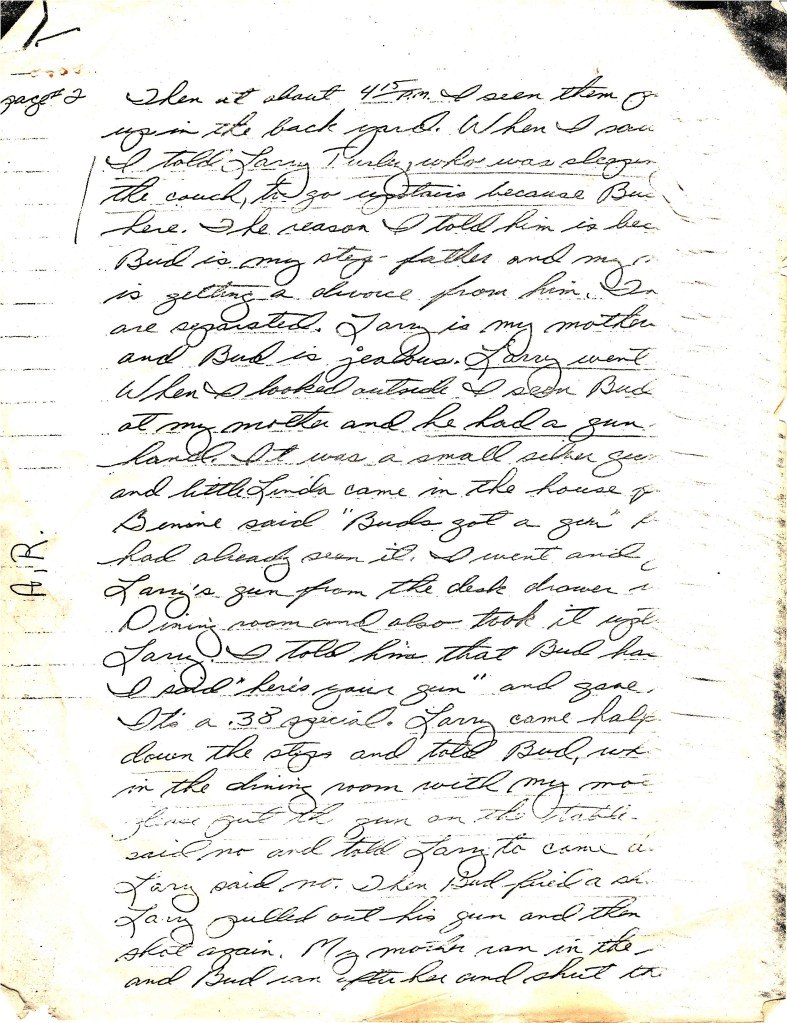 page # 2
Then at about 4 15 p.m. I seen them
up in the back yard. When I saw
I told Larry, who was
the couch, to go upstairs because
here. The reason I told him is
Bud is my step-father and my
is getting a divorce from him.
are separated. Larry is my
and Bud is jealous. Larry went
When I looked outside I seen Bud
at my mother and he had a gun
hand. It was a small silver
and little Linda came in the house
said "Buds got a gun"
had already seen it. I went and
Larry's gun from the desk drawer
Dining room and also took it
Larry. I told him that Bud
I said "here's your gun" and gave
It's a .38 special. Larry came half
down the steps and told Bud,
in the dining room with my
please put the gun on the table.
said no and told Larry to come
Larry said no. Then Bud fired a
Larry pulled out his gun and then
shot again. My mother ran in the
and Bud ran after her and shut
A.R.